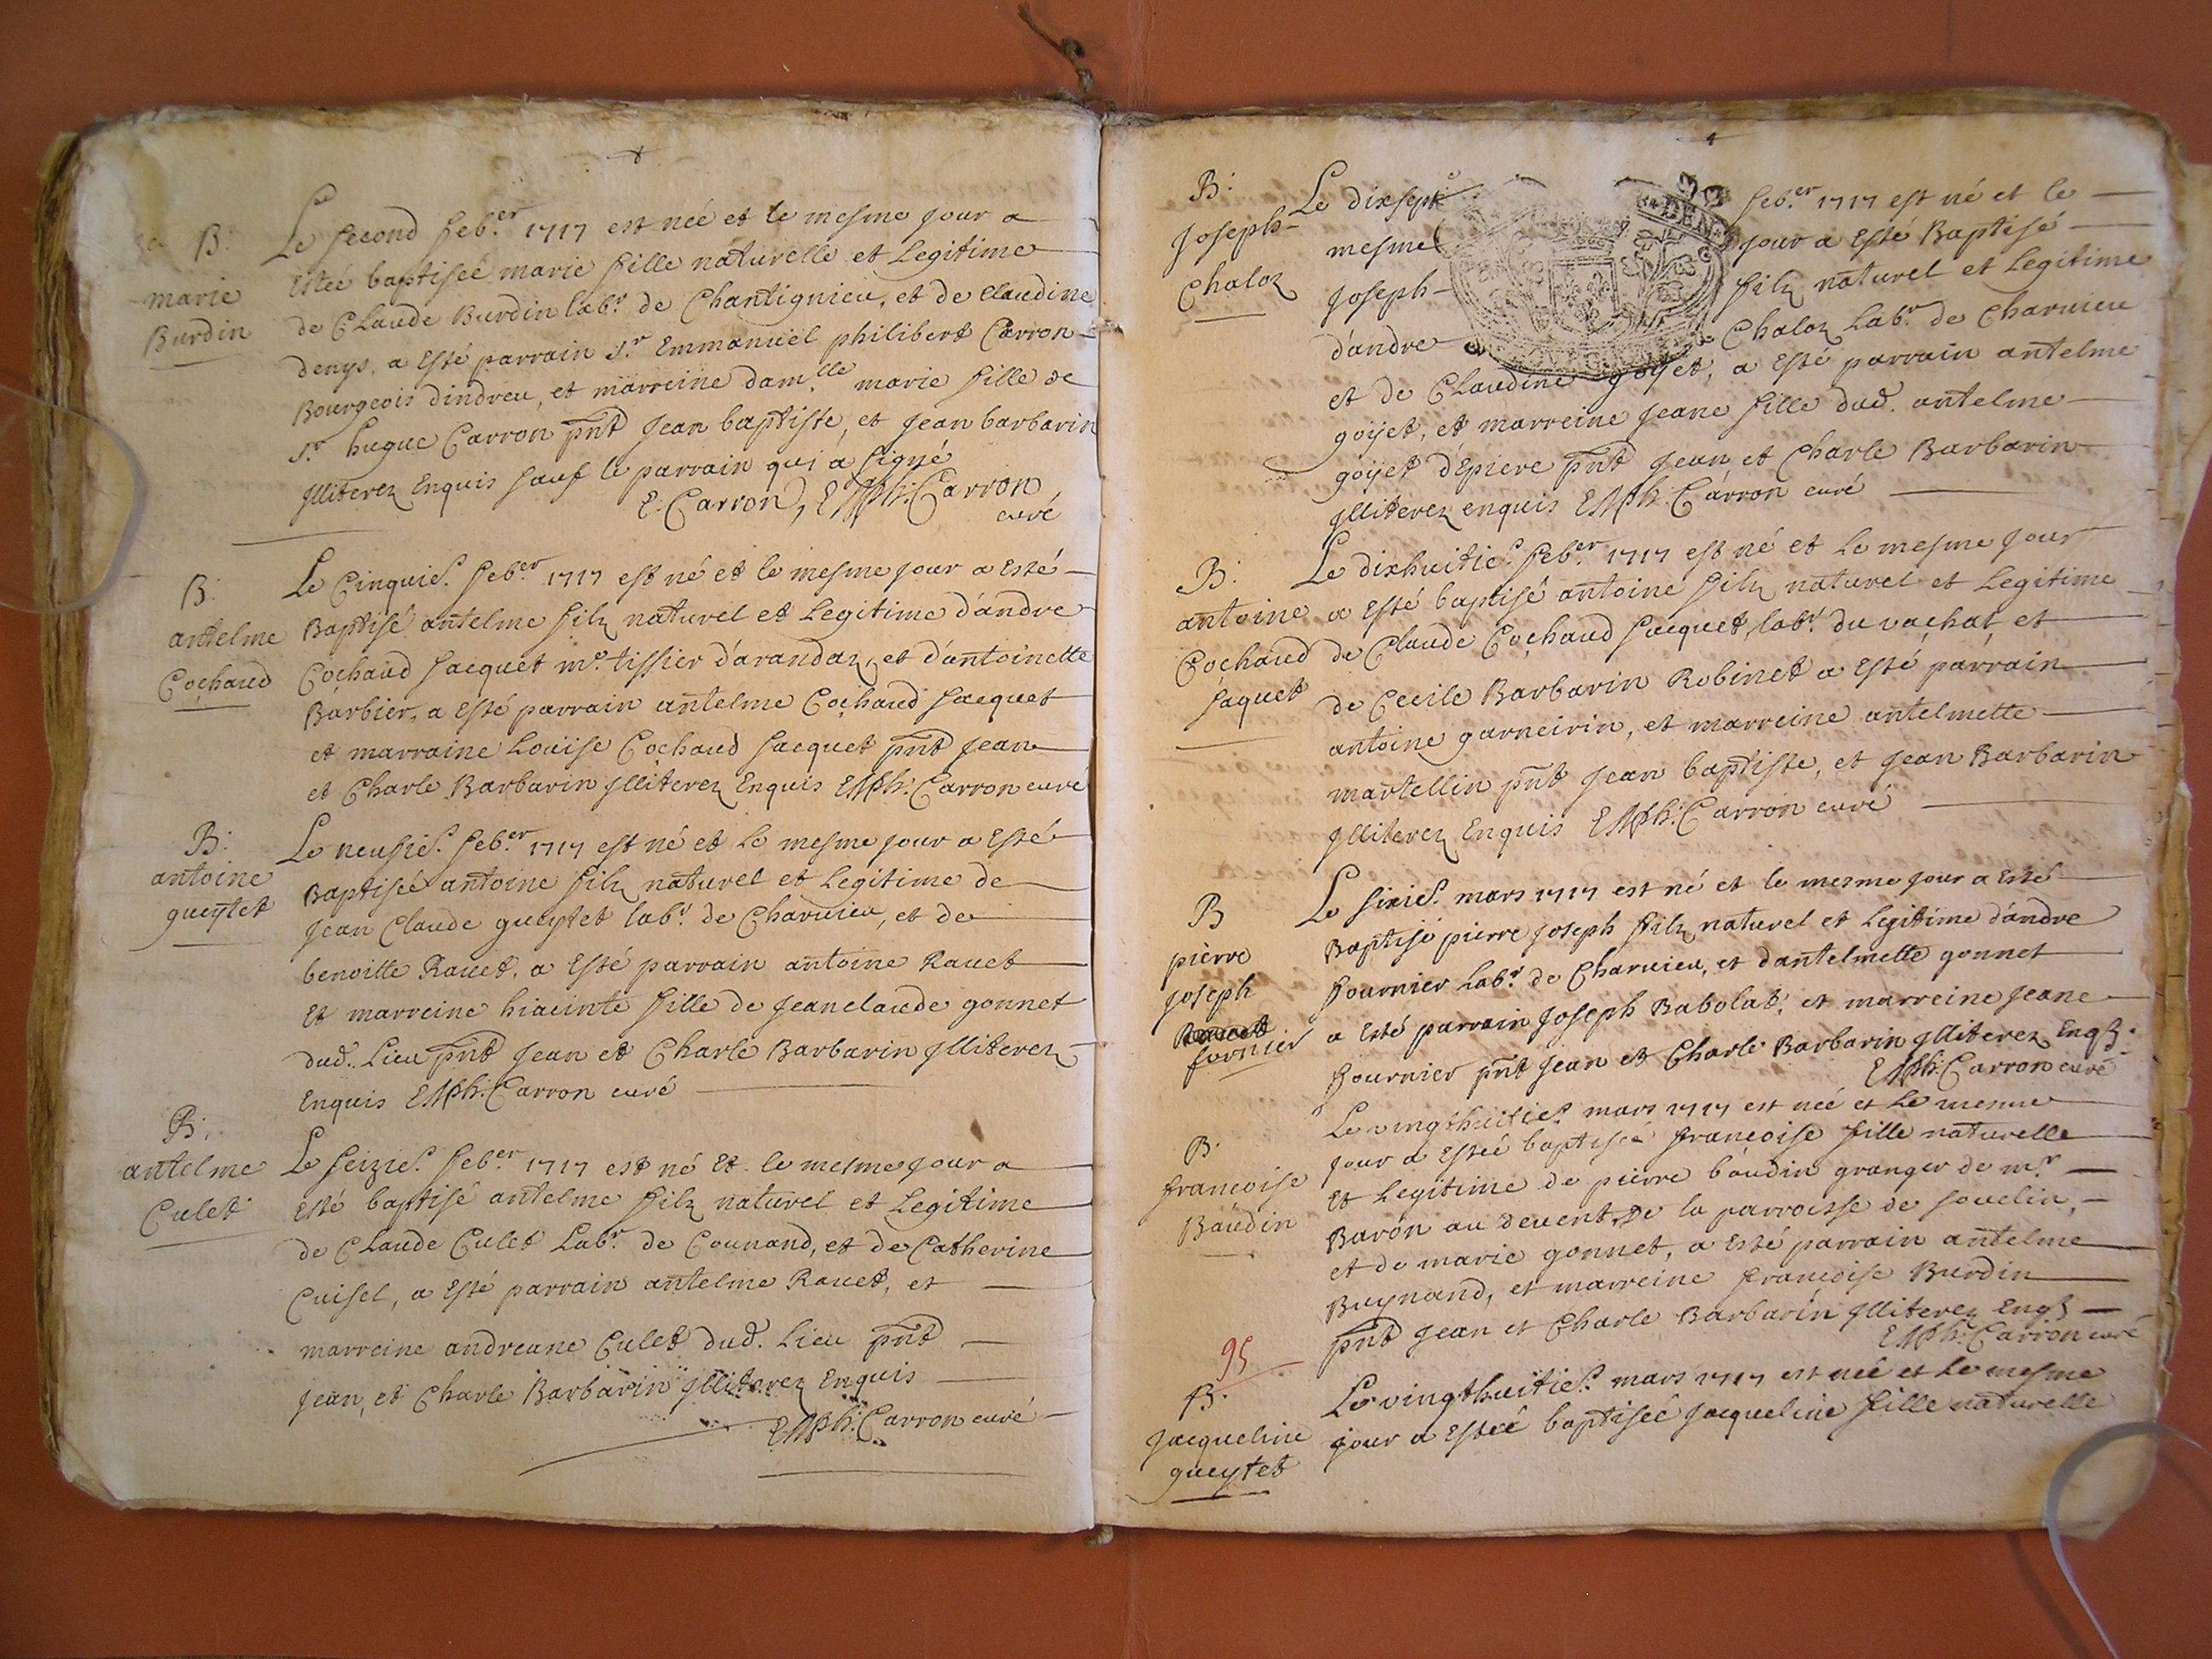 B:
marie
Burdin
Le second feb.er 1717 est née et le mesme jour a
estée baptisée marie fille naturelle et Legitime
de Claude Burdin lab.r de Chantignieu, et de Claudine
denys. a esté parrain s.r Emmanuel philibert Carron
Bourgeois dindreu, et marreine dam.lle marie fille de
s.r hugue Carron pnt Jean baptiste, et Jean barbarin
Jlliterez Enquis sauf le parrain qui a signé
E. Carron, EMph: Carron
curé
B:
antelme
Cochaud
Le Cinquie.e feb.er 1717 est né et le mesme jour a esté
Baptisé antelme filz naturel et Legitime d'andre
Cochaud Jacquet m.e tissier d'arandaz, et d'antoinette
Barbier, a esté parrain antelme Cochaud Jacquet
et marraine Louise Cochaud Jacquet pnt Jean
et Charle Barbarin Jlliterez Enquis EMph: Carron curé
B:
antoine
gueytet
Le neufie.e feb.er 1717 est né et le mesme jour a esté
Baptisée antoine filz naturel et Legitime de
Jean Claude gueytet lab.r de Charuieu, et de
benoitte Rauet, a esté parrain antoine Rauet
et marreine hiacinte fille de Jeanclaude gonnet
dud. Lieu pnt Jean et Charle Barbarin Jlliterez
Enquis EMph: Carron curé
B:
antelme
Culet
Le seizie.e feb.er 1717 est né et le mesme jour a
esté baptisé antelme filz naturel et Legitime
de Claude Culet Lab.r de Counand, et de Catherine
Cuisel, a esté parrain antelme Rauet, et
marreine andreane Culet dud. Lieu pnt
Jean, et Charle Barbarin Jlliterez Enquis
EMph: Carron curé
B:
Joseph
Chaloz
Le dixsept.e feb.er 1717 est né et le
mesme jour a esté Baptisé
Joseph filz naturel et Legitime
d'andre Chaloz Lab.r de Charuieu
et de Claudine goyet, a esté parrain antelme
goyet, et marreine Jeane fille dud. antelme
goyet d'Epiere pnt Jean et Charle Barbarin
Jlliterez enquis EMph: Carron curé
B:
antoine
Cochaud
Jaquet
Le dixhuitie.e feb.er 1717 est né et le mesme jour
a esté baptisé antoine filz naturel et Legitime
de Claude Cochaud Jacquet, lab.r du vachat, et
de Cecile Barbarin Robinet a esté parrain
antoine garneirin, et marreine antelmette
martellin pnt Jean baptiste, et Jean Barbarin
Jlliterez Enquis EMph: Carron curé
B
pierre
Joseph
fornier
Le sixie.e mars 1717 est né et le mesme jour a esté
Baptisé pierre Joseph filz naturel et Legitime d'andre
fournier Lab.r de Charuieu, et dantelmette gonnet
a esté parrain Joseph Babolat, et marreine Jeane
fournier pnt Jean et Charle Barbarin Jlliterez Enqs.
EMph: Carron curé
B.
francoise
Baudin
Le vingthuitie.e mars 1717 est née et le mesme
jour a estée baptisée francoise fille naturelle
et Legitime de pierre baudin granger de m.r
Baron au deuent, de la parroisse de souclin,
et de marie gonnet, a esté parrain antelme
Buynand, et marreine francoise Burdin
pnt Jean et Charle Barbarin Jlliterez Enqs
EMph: Carron curé
95
B.
Jacqueline
gueytet
Le vingthuitie.e mars 1717 est née et le mesme
jour a estée baptisée Jacqueline fille naturelle